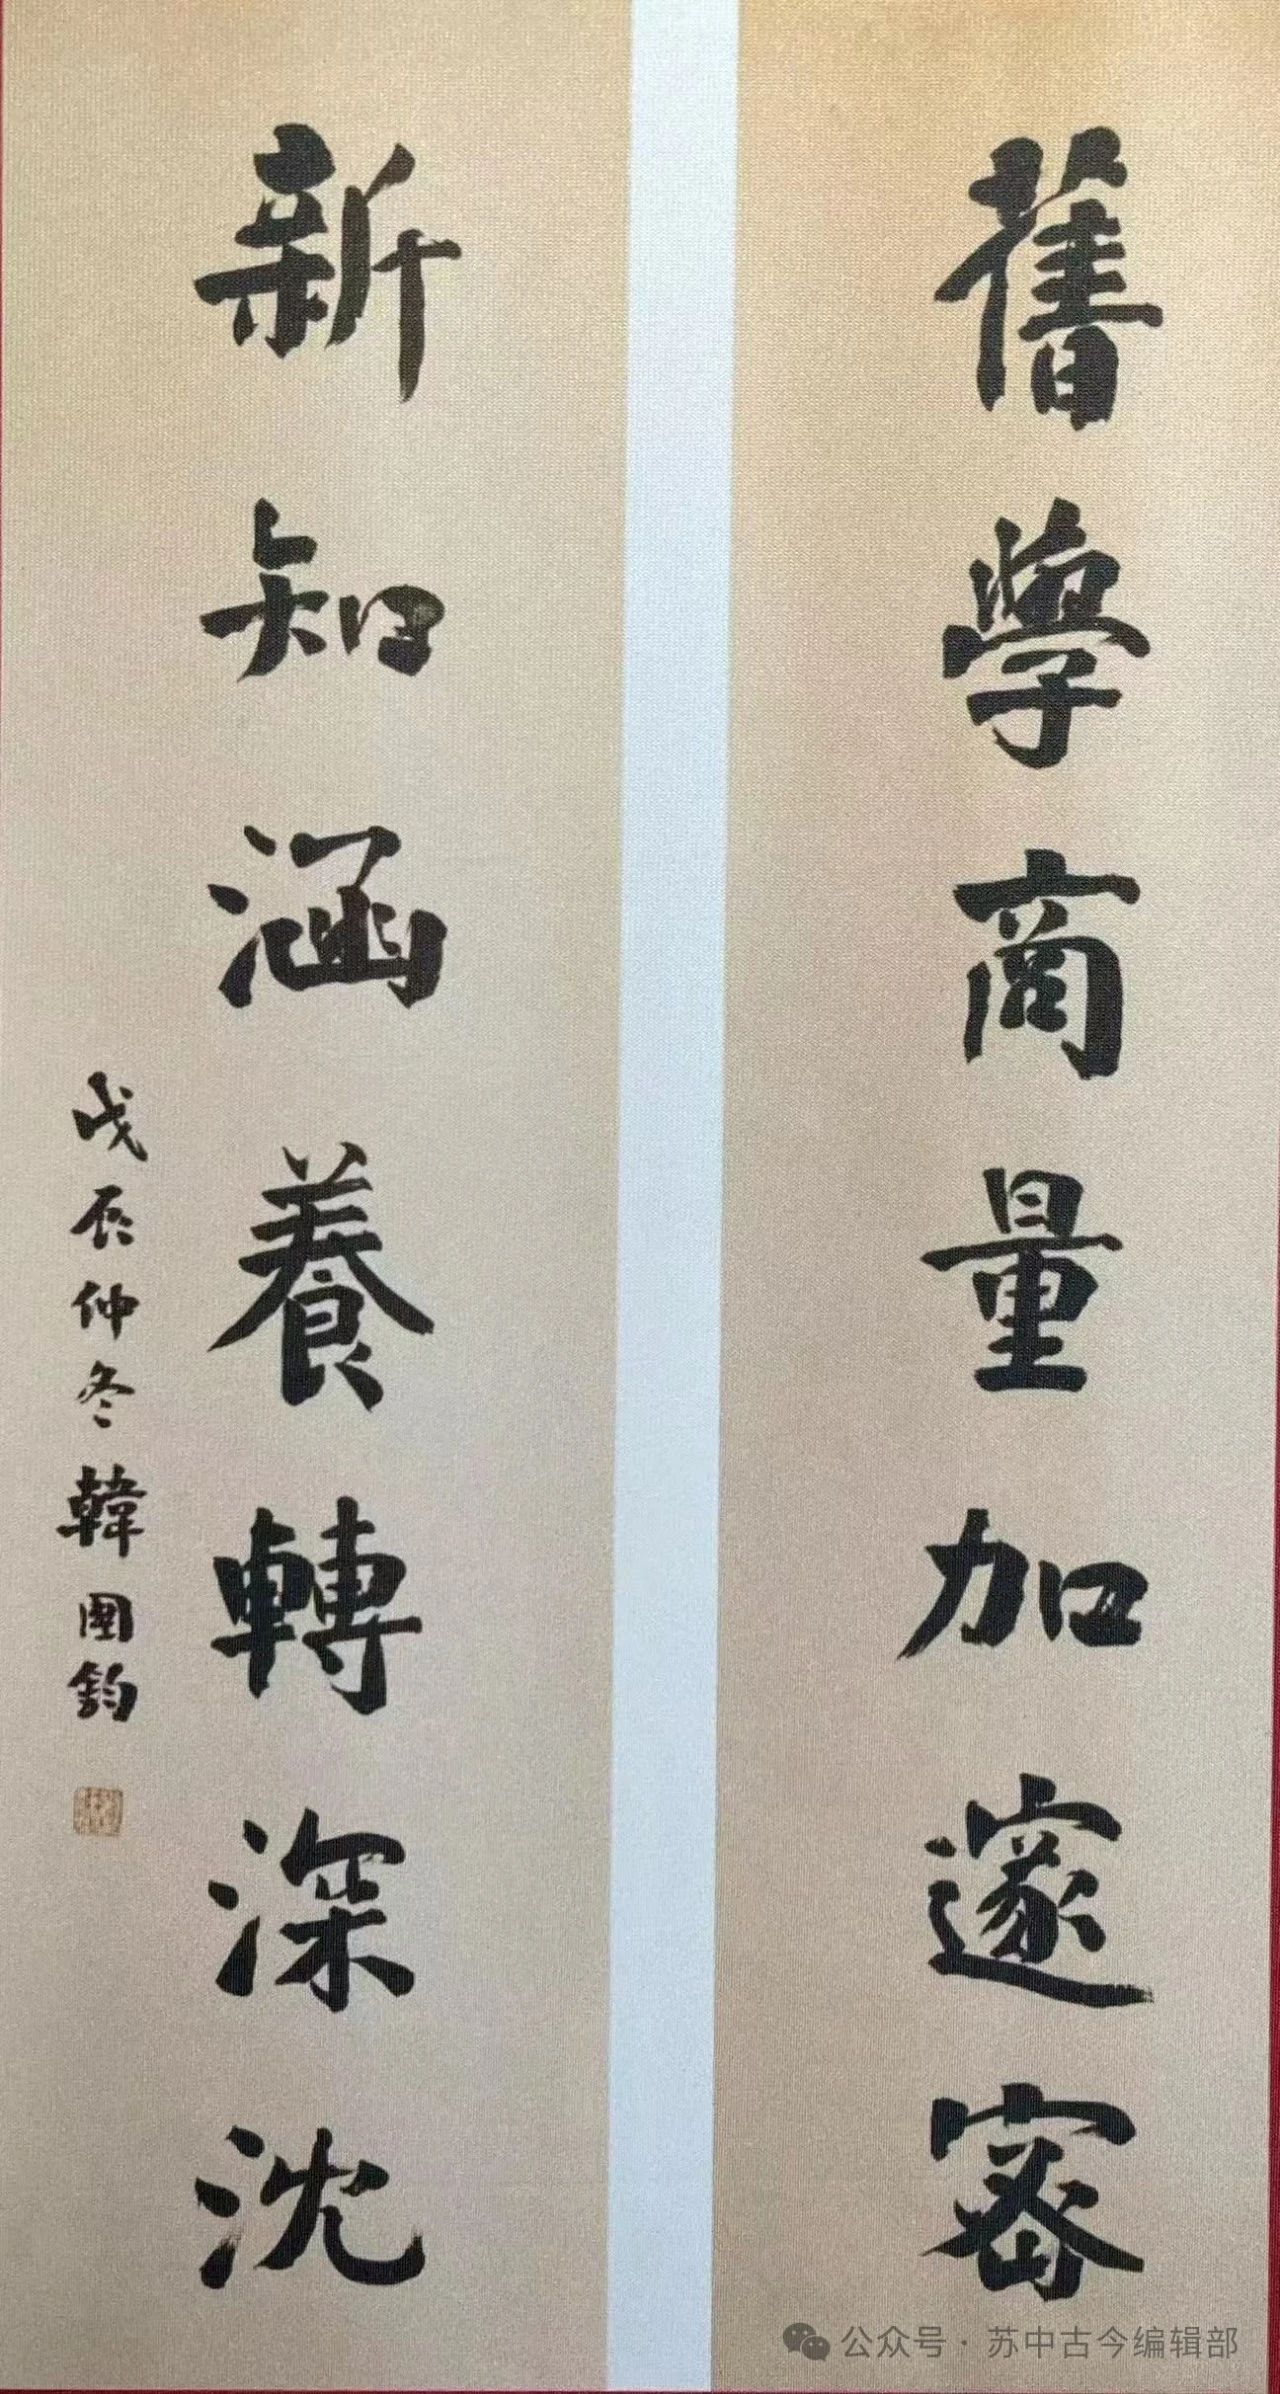 舊學商量加邃密
新知涵養轉深沈
戊辰仲冬韓國鈞
公众号·苏中古今编辑部